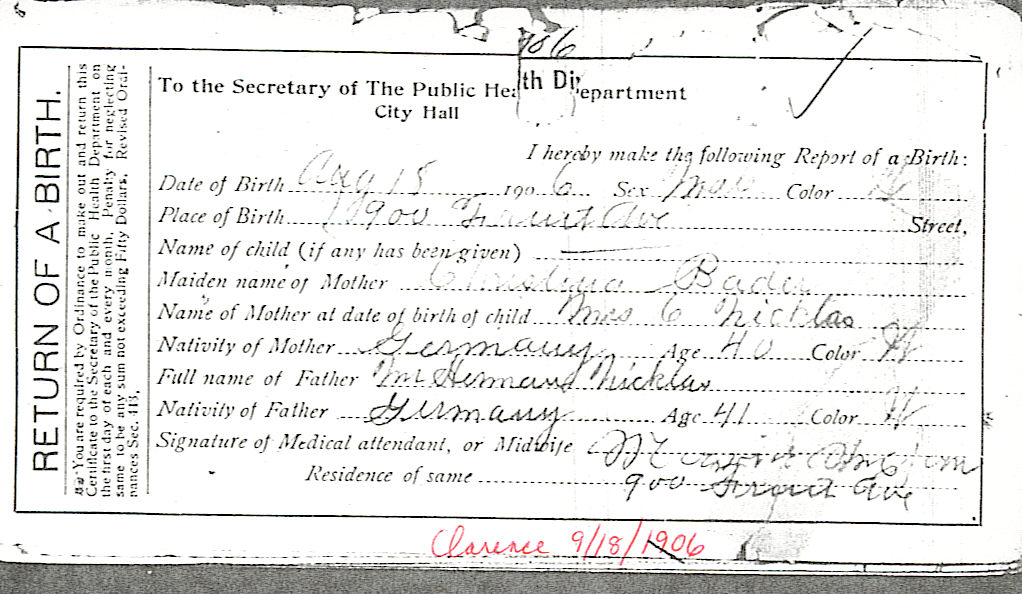 RETURN OF A BIRTH.
You are required by Ordinance to make out and return this
Certificate to the Secretary of the Public Health Department on
the first day of each and every month. Penalty for neglecting
same to be any sum not exceeding Fifty Dollars, Revised Ordi-
nances Sec. 413.
906
To the Secretary of The Public Hea th Di epartment
City Hall
I hereby make the following Report of a Birth:
Date of Birth Aug 18 190 6 Sex Color W
Place of Birth 1900 Ave Street,
Name of child (if any has been given)
Maiden name of Mother Bader
Name of Mother at date of birth of child Mrs C Nicklas
Nativity of Mother Germany Age 40 Color W
Full name of Father Mr Herman Nicklas
Nativity of Father Germany Age 41 Color W
Signature of Medical attendant, or Midwife
Residence of same 900 Ave
Clarence 9/18/1906